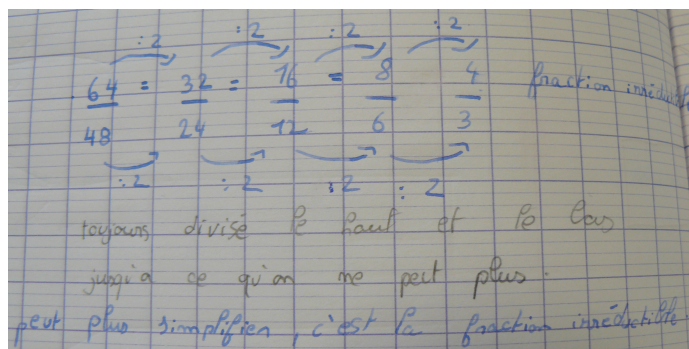 :2 :2 :2 :2
64 = 32 = 16 = 8 4 fraction irréductible
48 24 12 6 3
:2 :2 :2 :2
toujours divisé le haut et le bas
jusqu'a ce qu'on ne peut plus.
peut plus simplifier, c'est la fraction irréductible